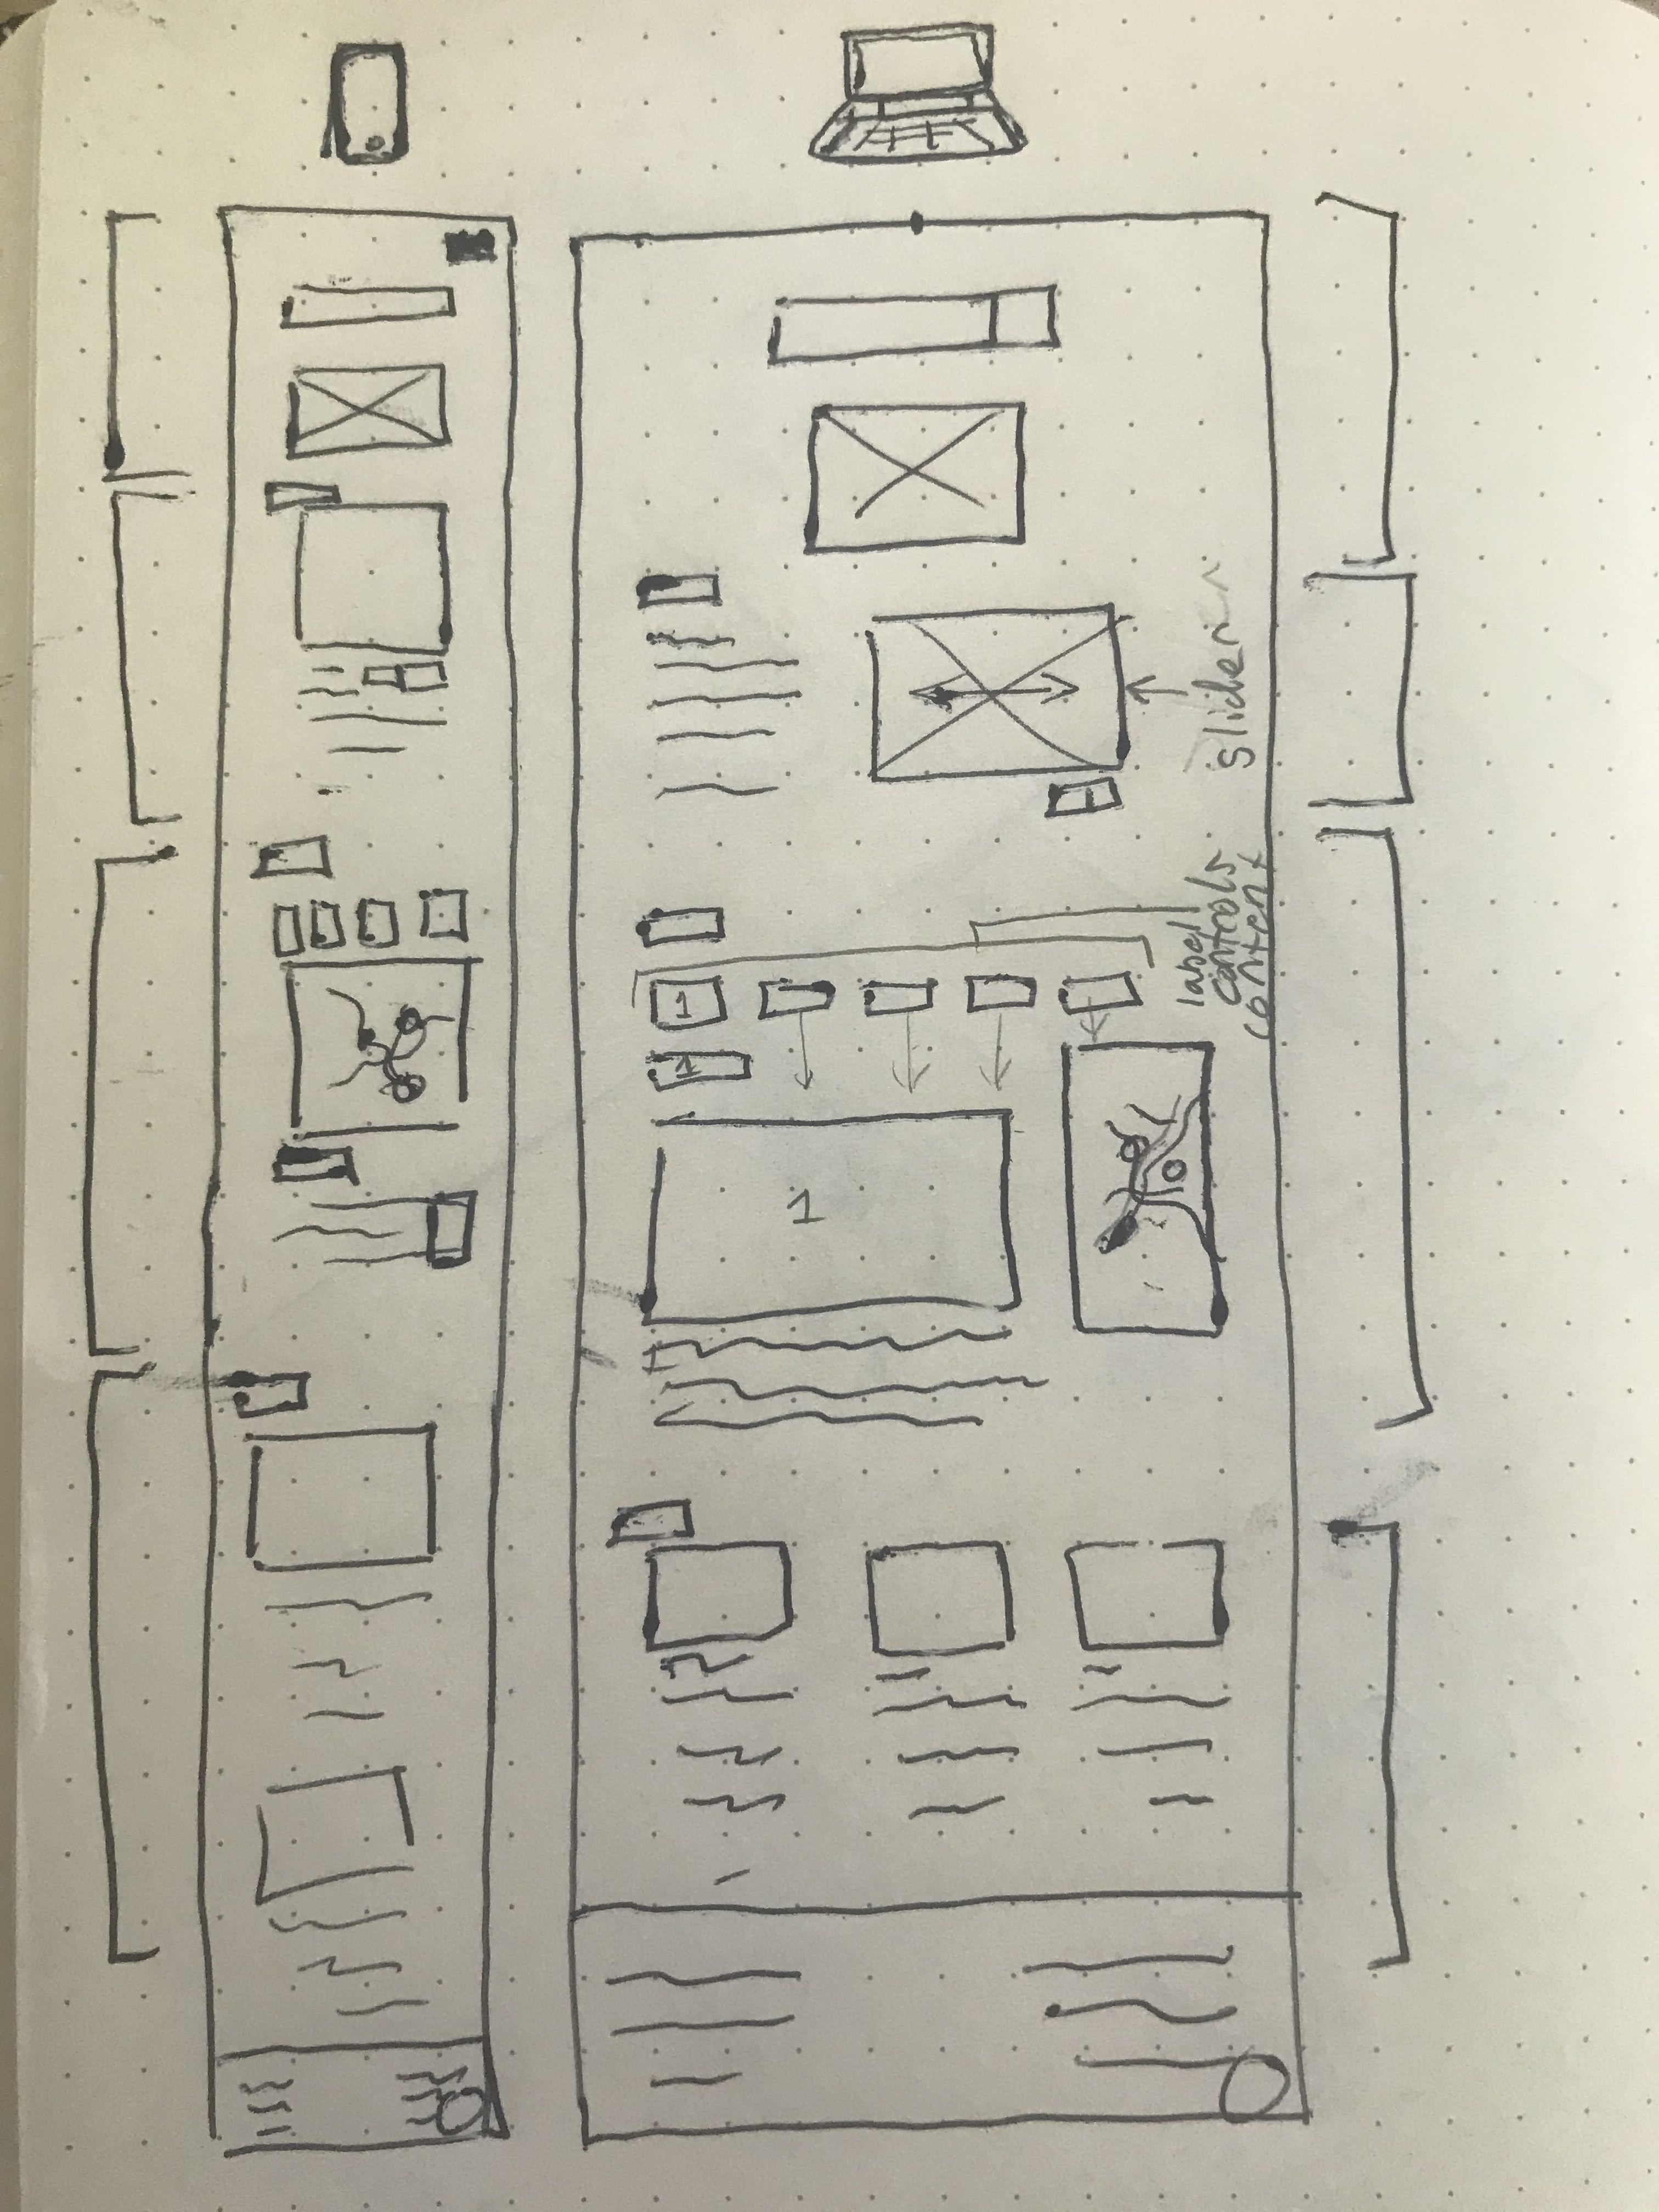 slider
label
controls
content
1
1
1